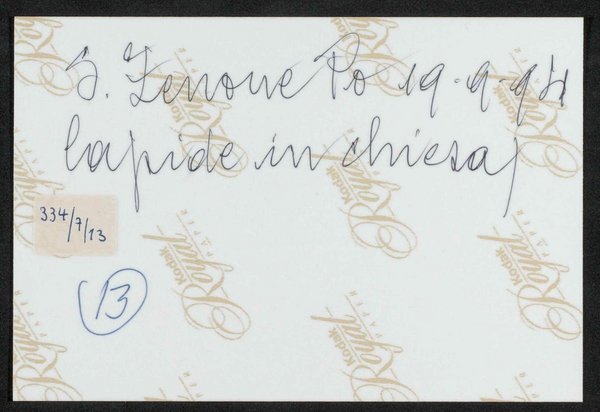 S. Zenone Po 19-9-94
lapide in chiesa
334/7/13
13
Kodak
Royal
PAPER